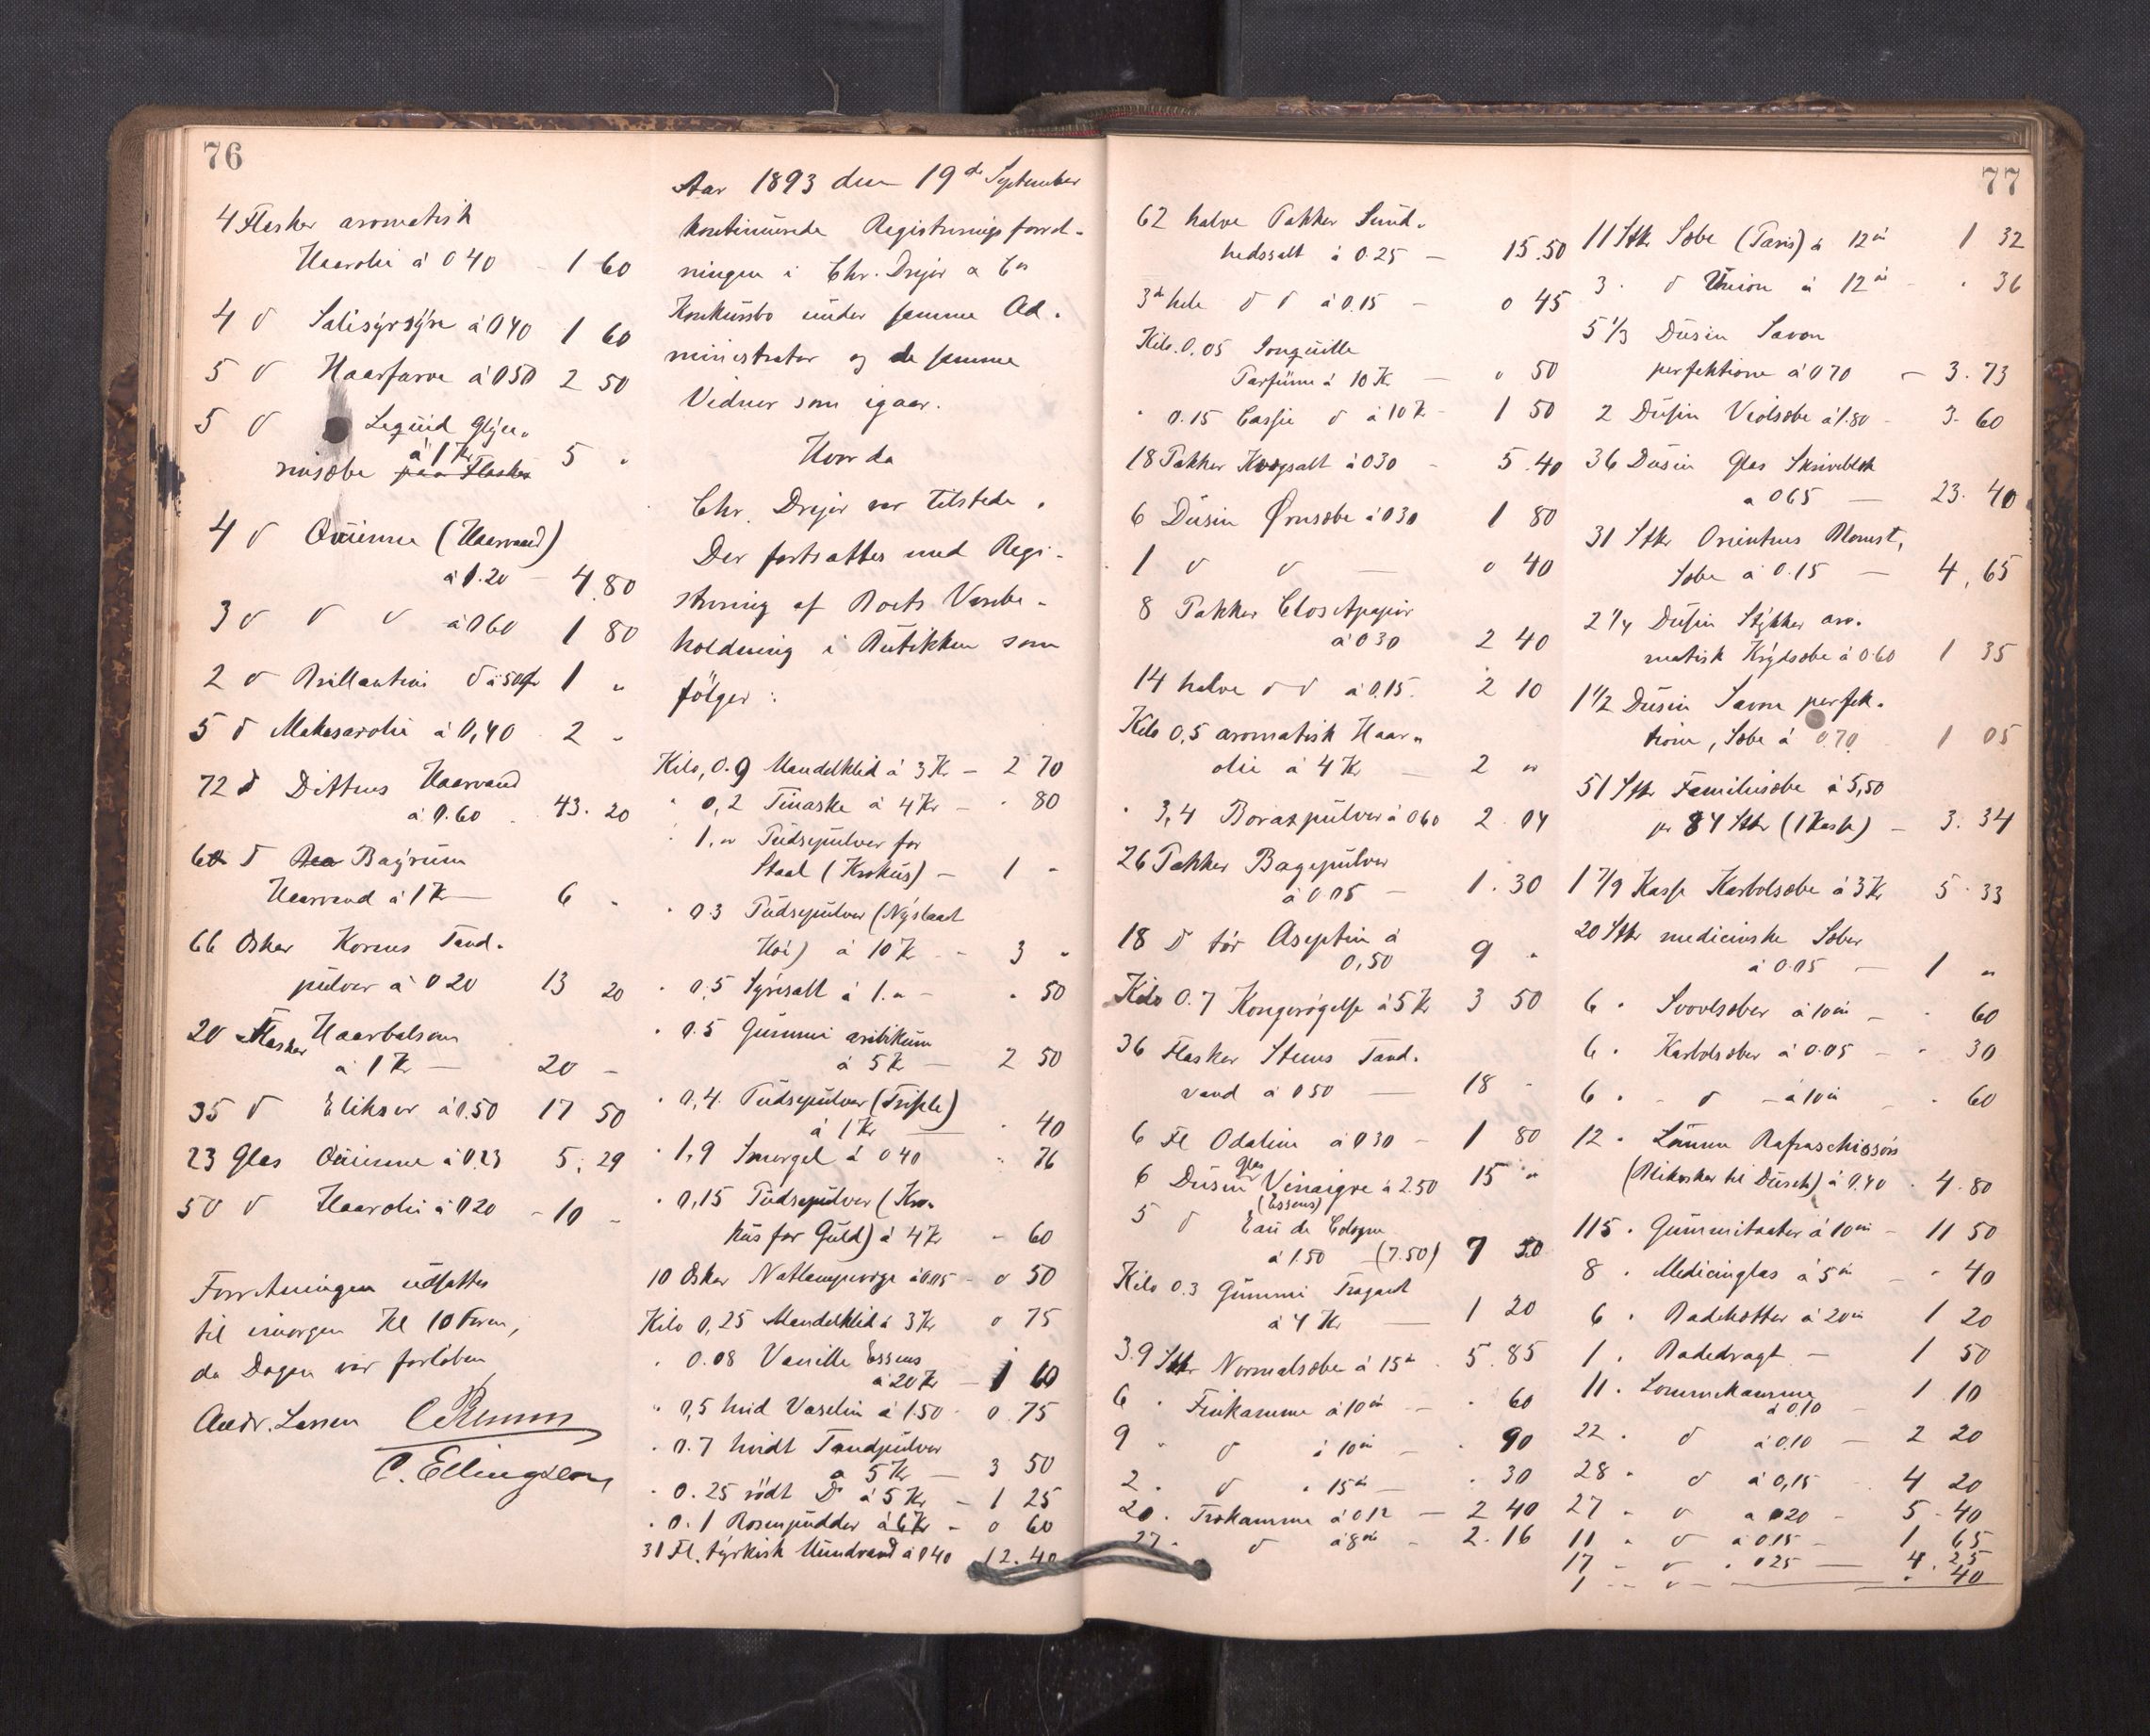 76
4 Flasker aromatisk
Haarolie à 0 40 - 1 60
4 d Salisyrsyre à 0 40 1 60
5 d Haarfarve à 0 50 2 50
5 d Liquid Glyce-
à 1 Kr
rinsæbe paa Flasker 5 "
4 d Quinine (Haarvand)
à 1.20 - 4.80
3 d d d à 0 60 1 80
2 d Brillantini d à 50 ør 1 "
5 d Makasarolie à 0,40 2 -
72 d Dittens Haarvand
à 0.60 43. 20
6 d Bayrum
Haarvand à 1 K - 6 -
66 Æsker Tand-
pulver à 0 20 13 20
20 Flasker Haarbalsam
à 1 K - 20 -
35 d Eliksir à 0.50 17 50
23 Glas Quinine à 0.23 5. 29
50 d Haarolie à 0 20 - 10 -
Forretningen udsattes
til imorgen Kl 10 Form,
da Dagen var forløben
Andr. Larsen
C. Ellingsen
Aar 1893 den 19de September
kontinuerede Registreringsforret-
ningen i Chr. Dreyer & Co
Konkursbo under samme Ad-
ministrator og de samme
Vidner som igaar.
Hvorda
Chr. Dreyer var tilstede.
Der fortsattes med Regi-
strering af Boets Varebe-
holdning i Butikken som
følger:
Kilo, 0.9 Mandelklid à 3 K - 2 70
" 0,2 Tinaske à 4 Kr - . 80
" 1, " Pudsepulver for
Staal (Krokus) - 1 -
" 0.3 Pudsepulver (Nyslaaet
Høi) à 10 K - 3 -
" 0,5 Syresalt à 1. " - . 50
" 0.5 Gummi arabikum
à 5 K - 2 50
" 0,4 Pudsepulver (Triple)
à 1 Kr - . 40
" 1,9 Smergel à 0 40 " 76
" 0,15 Pudsepulver (Kro-
kus for Guld) à 4 K - 60
10 Æsker Natlampevæge à 0.05 - 0 50
Kilo 0,25 Mandelklid à 3 Kr 0 75
" 0.08 Vanille Essens
à 20 K - 1 60
" 0,5 hvid Vaselin à 1.50 0 75
" 0.7 hvidt Tandpulver
à 5 K - 3 50
" 0.25 rødt D à 5 Kr - 1 25
" 0.1 Rosenpudder à 6 Kr - 0 60
31 Fl. tyrkisk Mundvand à 0 40 12.40
77
62 halve Pakker Sund-
hedssalt à 0.25 - 15.50
3 hele d d à 0.15 - 0 45
Kilo. 0,05 Jonquille
Parfume à 10 K - 0 50
" 0.15 Cassie d à 10 K - 1 50
18 Pakker Kogsalt à 0 30 - 5.40
6 Dusin Ørnsæbe à 0 30 1 80
1 d d - 0 40
8 Pakker Closetpapir
à 0 30 2 40
14 halve d d à 0.15. 2 10
Kilo 0,5 aromatisk Haar-
olie à 4 Kr - 2 "
" 3,4 Boraxpulver à 0 60 2. 04
26 Pakker Bagepulver
à 0 05 - 1. 30
18 D tør Aseptin à
0,50 9 "
Kilo 0.7 Kongerøgelse à 5 Kr 3 50
36 Flasker Stens Tand-
vand à 0 50 - 18 -
6 Fl Odaline à 0 30 - 1 80
6 Dusin Glas Vinaigre à 2.50 15 "
(Essens)
5 d Eau de Cologne
à 1.50 (7.50) 7 50
Kilo 0.3 Gummi Tragant
à 4 Kr - 1 20
39 Stkr Normalsæbe à 15 ør 5. 85
6 " Finkamme à 10 ør - . 60
9 " d à 10 ør - . 90
2 " d " 15 ør - . 30
20 . Trækamme à 0 12 - 2 40
27 . d à 8 ør - 2. 16
11 Stkr Sæbe (Paris) à 12 ør 1 32
3 . d Union à 12 ør . 36
5 1/3 Dusin Savon
perfektione à 0 70 - 3. 73
2 Dusin Violsæbe à 1.80 - 3. 60
36 Dusin Glas Skriveblæk
à 0 65 - 23. 40
31 Stkr Orientens Blomst,
Sæbe à 0.15 - 4,65
2 1/4 Dusin Stykker aro-
matisk Krydsæbe à 0.60 1 35
1 1/2 Dusin Savon perfek-
tione, Sæbe à 0.70 1 05
51 Stkr Familiesæbe à 5,50
pr 84 Stkr (1 Kasse) - 3. 34
1 7/9 Kasse Karbolsæbe à 3 Kr 5. 33
20 Stkr medicinske Sæber
à 0.05 - 1 "
6 " Svovlsæber à 10 ør - . 60
6 " Karbolsæber à 0.05 - . 30
6 " - d - à 10 ør - . 60
12 " Rafraschissørs
(Blikæsker til Dusch) à 0.40 . 4. 80
115 . Gummitaater à 10 ør - 11 50
8 . Medicinglas à 5 ør - " 40
6 . Badehætter à 20 ør 1 20
1 . Badedragt - 1 50
11 . Lommekamme
à 0,10 1 10
22 . d à 0.10 - 2 20
28 . d à 0,15 4 20
27 . d à 0 20 - 5.40
11 " d à 0.15 - 1 65
17 - d . 0 25 - 4. 25
1 - d - . 40